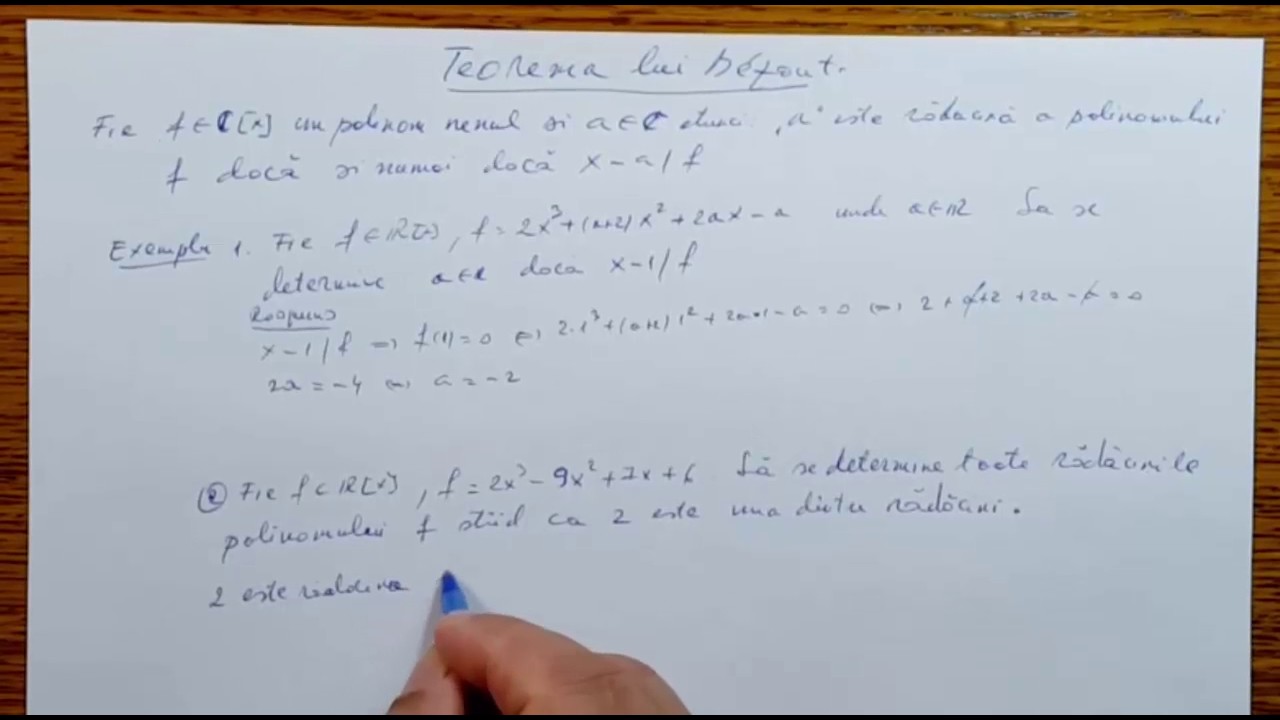 Teorema lui Bézout.
Fie f ∈ ℂ[x] un polinom nenul si a ∈ ℂ atunci „a" este rădăcină a polinomului
f dacă si numai dacă x-a/f
Exemplu 1. Fie f ∈ ℝ[x], f = 2x³+(a+2)x²+2ax-a unde a∈ℝ Sa se
determine a∈ℝ daca x-1/f
x-1/f ⇒ f(1)=0 ⇔ 2·1³+(a+2)1²+2a·1-a=0 ⇔ 2+a+2+2a-a=0
2a=-4 ⇔ a=-2
② Fie f ∈ ℝ[x], f = 2x³-9x²+7x+6 Să se determine toate rădăcinile
polinomului f stiid ca 2 este una dintre rădăcini.
2 este